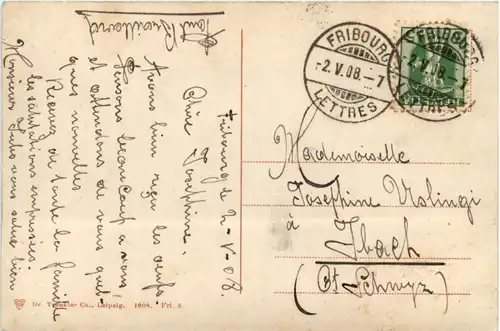 Fribourg 2-V-08.
Chère Josephine,
Avons bien reçu les oeufs
Pensons beaucoup à vous
et attendons de vous quel-
ques nouvelles
Recevez de toute la famille
les salutations empressées.
Monsieur Jules vous salue bien
FRIBOURG
-2.V.08.-7
LETTRES
FRIBOURG
-2.V.08.-
Mademoiselle
Josephine Uslingi
à
Ibach
(Ct Schwyz)
Dr. Trenkler Co., Leipzig. 1904. Fri. 3.